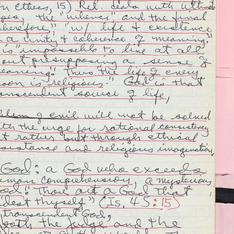 on ethics, 15) Rel. deals with ultimate
the "whence" and the final
"wherefore," w/ life & existence
a unity & coherence of meaning.
is "impossible to live at all
out presupposing a sense of
meaning. Thus the life of every
son is religious." God is that
source of life,
problem of evil will not be solved
the urge for rational consistency
rather but through ethical
and religious imagination
God: a God who exceeds
comprehension, a mysterious
God. "Thou art a God that
hidest thyself" (Is, 45:15)
transcendent God,
both the judge and the